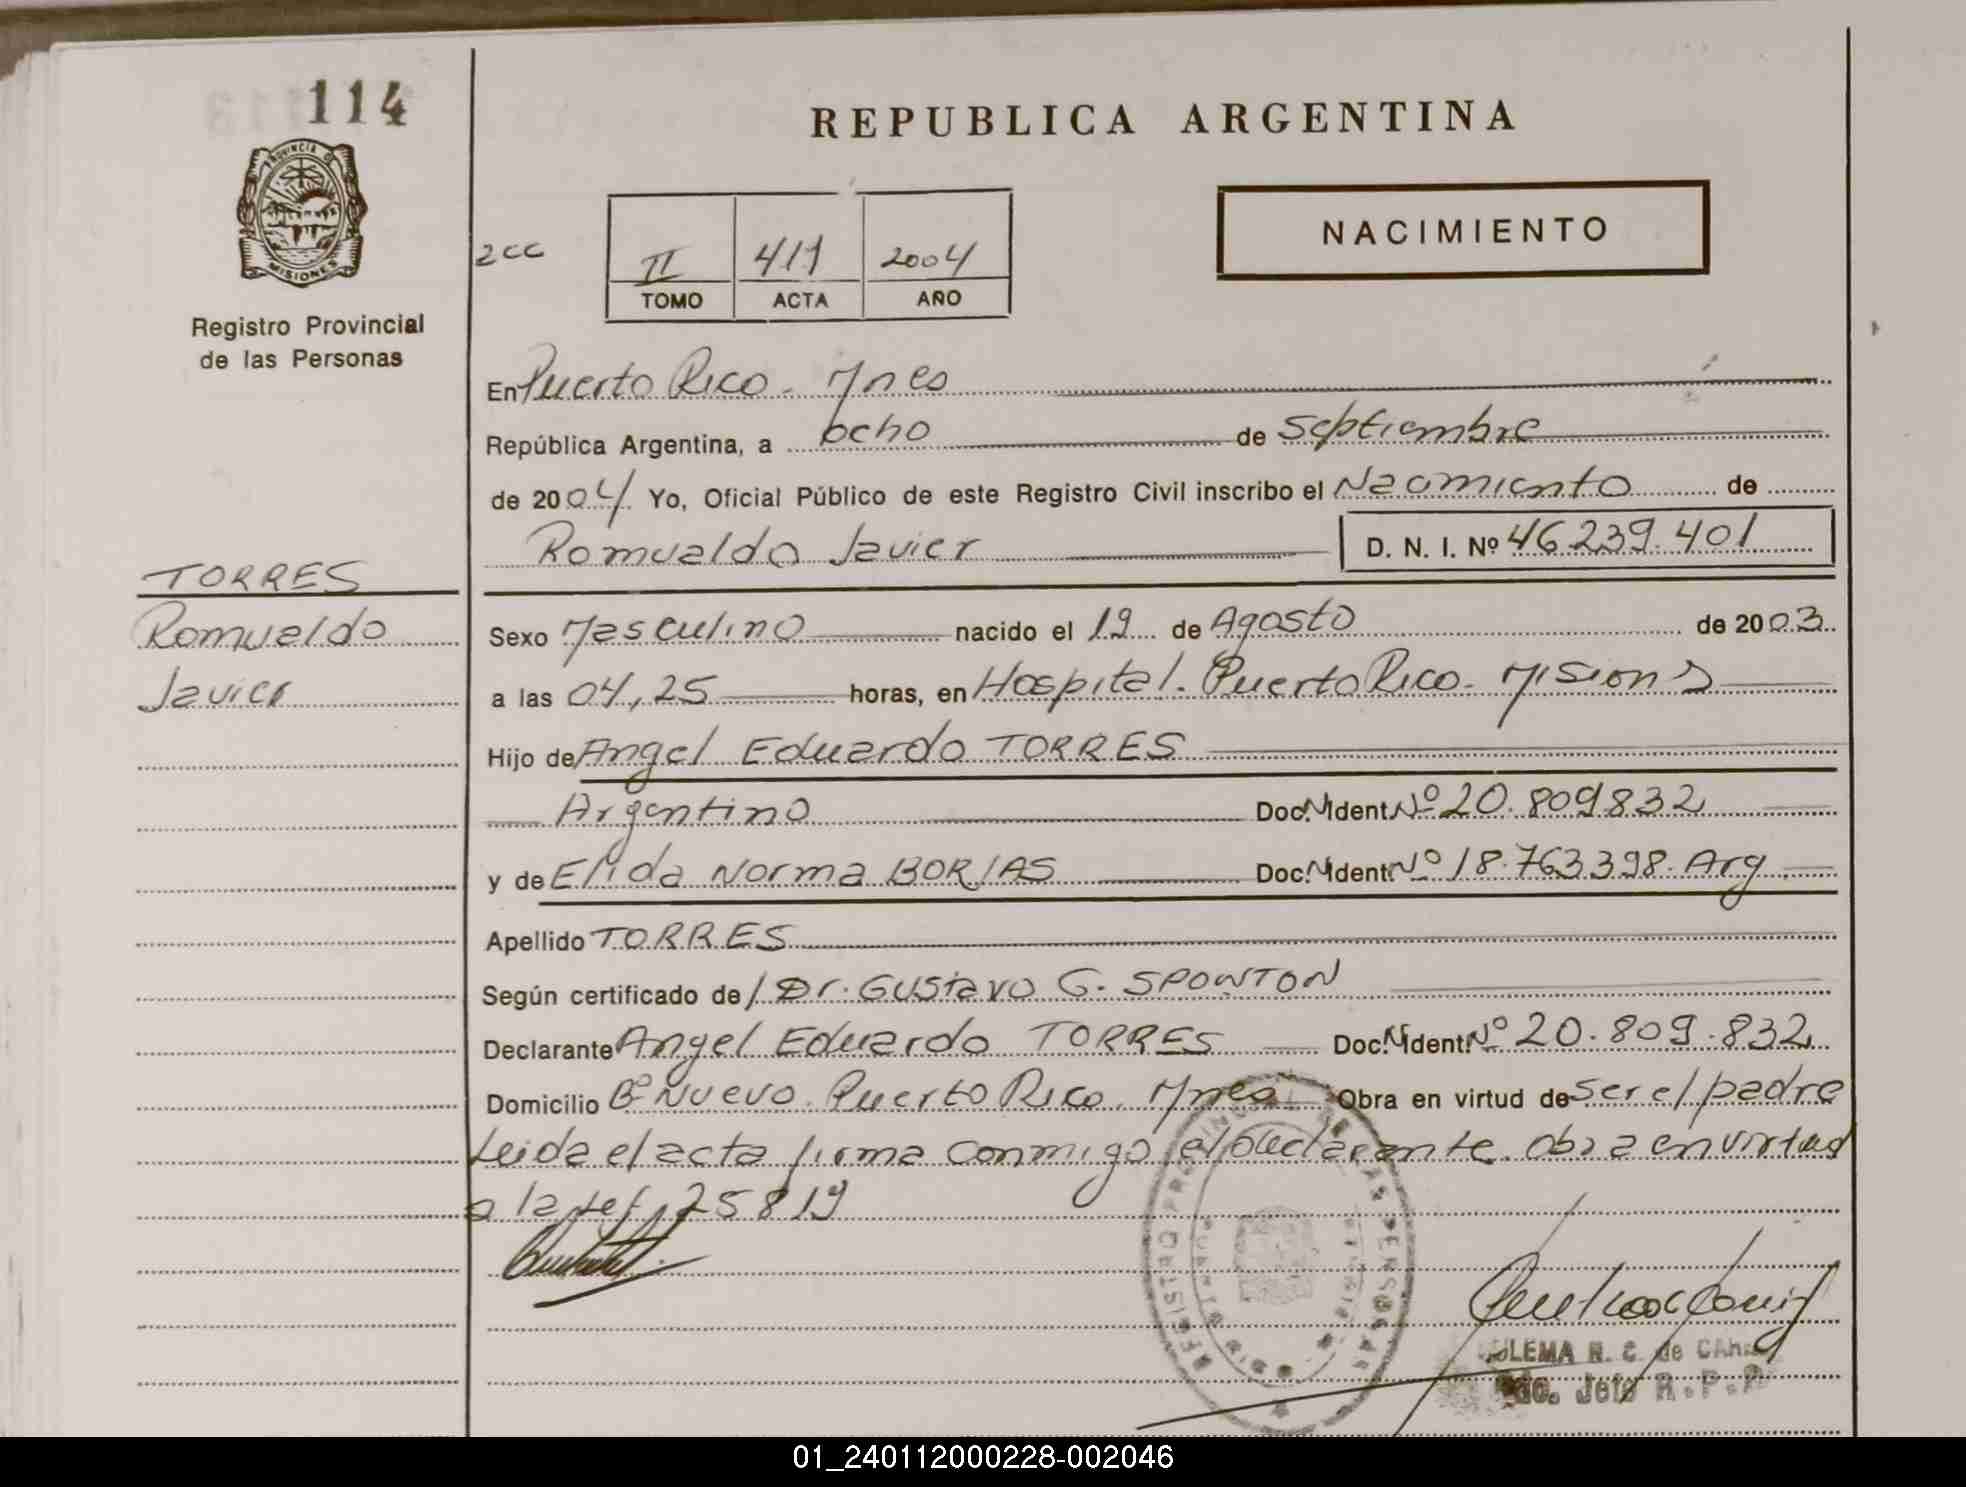 114
PROVINCIA DE
MISIONES
Registro Provincial
de las Personas
REPUBLICA ARGENTINA
NACIMIENTO
2cc
II 411 2004
TOMO ACTA AÑO
En Puerto Rico - Mnes
República Argentina, a ocho de septiembre
de 2004 Yo, Oficial Público de este Registro Civil inscribo el Nacimiento de
Romualdo Javier D. N. I. Nº 46.239.401
TORRES
Romualdo
Javier
Sexo Masculino nacido el 19 de Agosto de 2003
a las 04,25 horas, en Hospital. Puerto Rico - Misiones
Hijo de Angel Eduardo TORRES
Argentino Doc. Ident. Nº 20.809832
y de Elida Norma BORJAS Doc. Ident. Nº 18.763.398. Arg
Apellido TORRES
Según certificado de Dr. Gustavo G. SPONTON
Declarante Angel Eduardo TORRES Doc. Ident. Nº 20.809.832
Domicilio Bº Nuevo. Puerto Rico. Mnes Obra en virtud de ser el padre
Leida el acta firma conmigo el declarante. Obra en virtud
a la 25819
REGISTRO PROVINCIAL DE LAS PERSONAS
N. C. de
Jefe R.P.P.
01_240112000228-002046